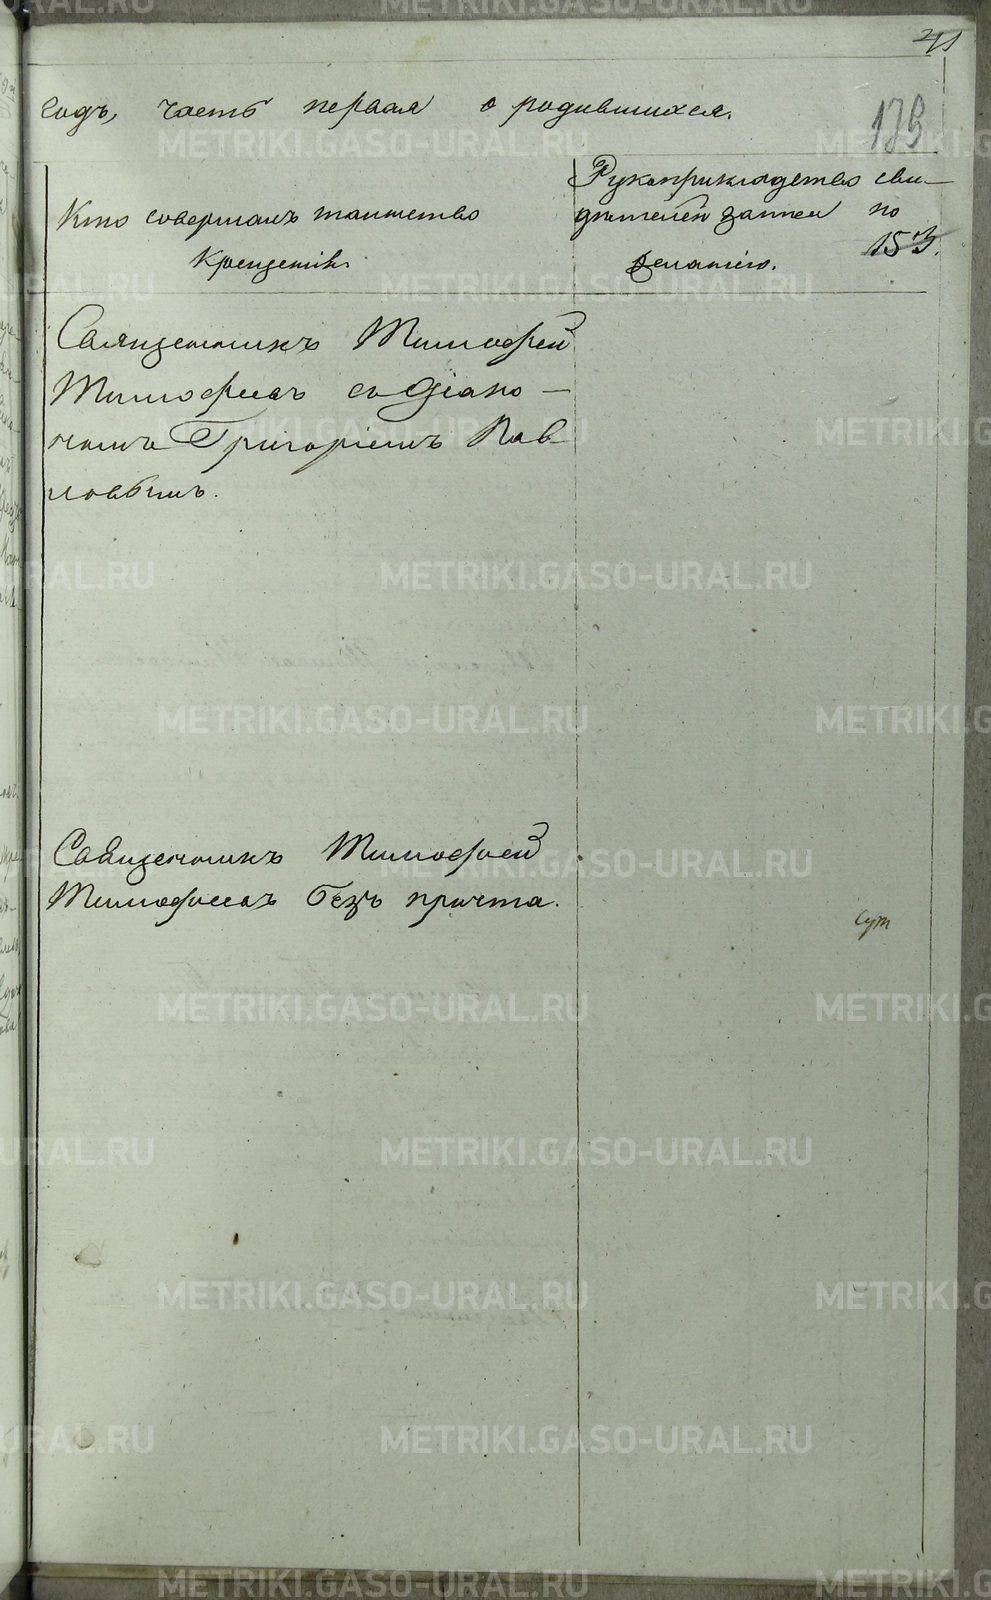 годъ, часть первая о родившихся.
175
Кто совершалъ таинство
Крещенія.
Рукоприкладство сви—
дѣтелей записи по
желанію.
153.
Священникъ Тимофей
Тимофеевъ съ Діако—
номъ Григоріемъ Пав
ловымъ.
Священникъ Тимофей
Тимофеевъ безъ причта.
METRIKI.GASO-URAL.RU